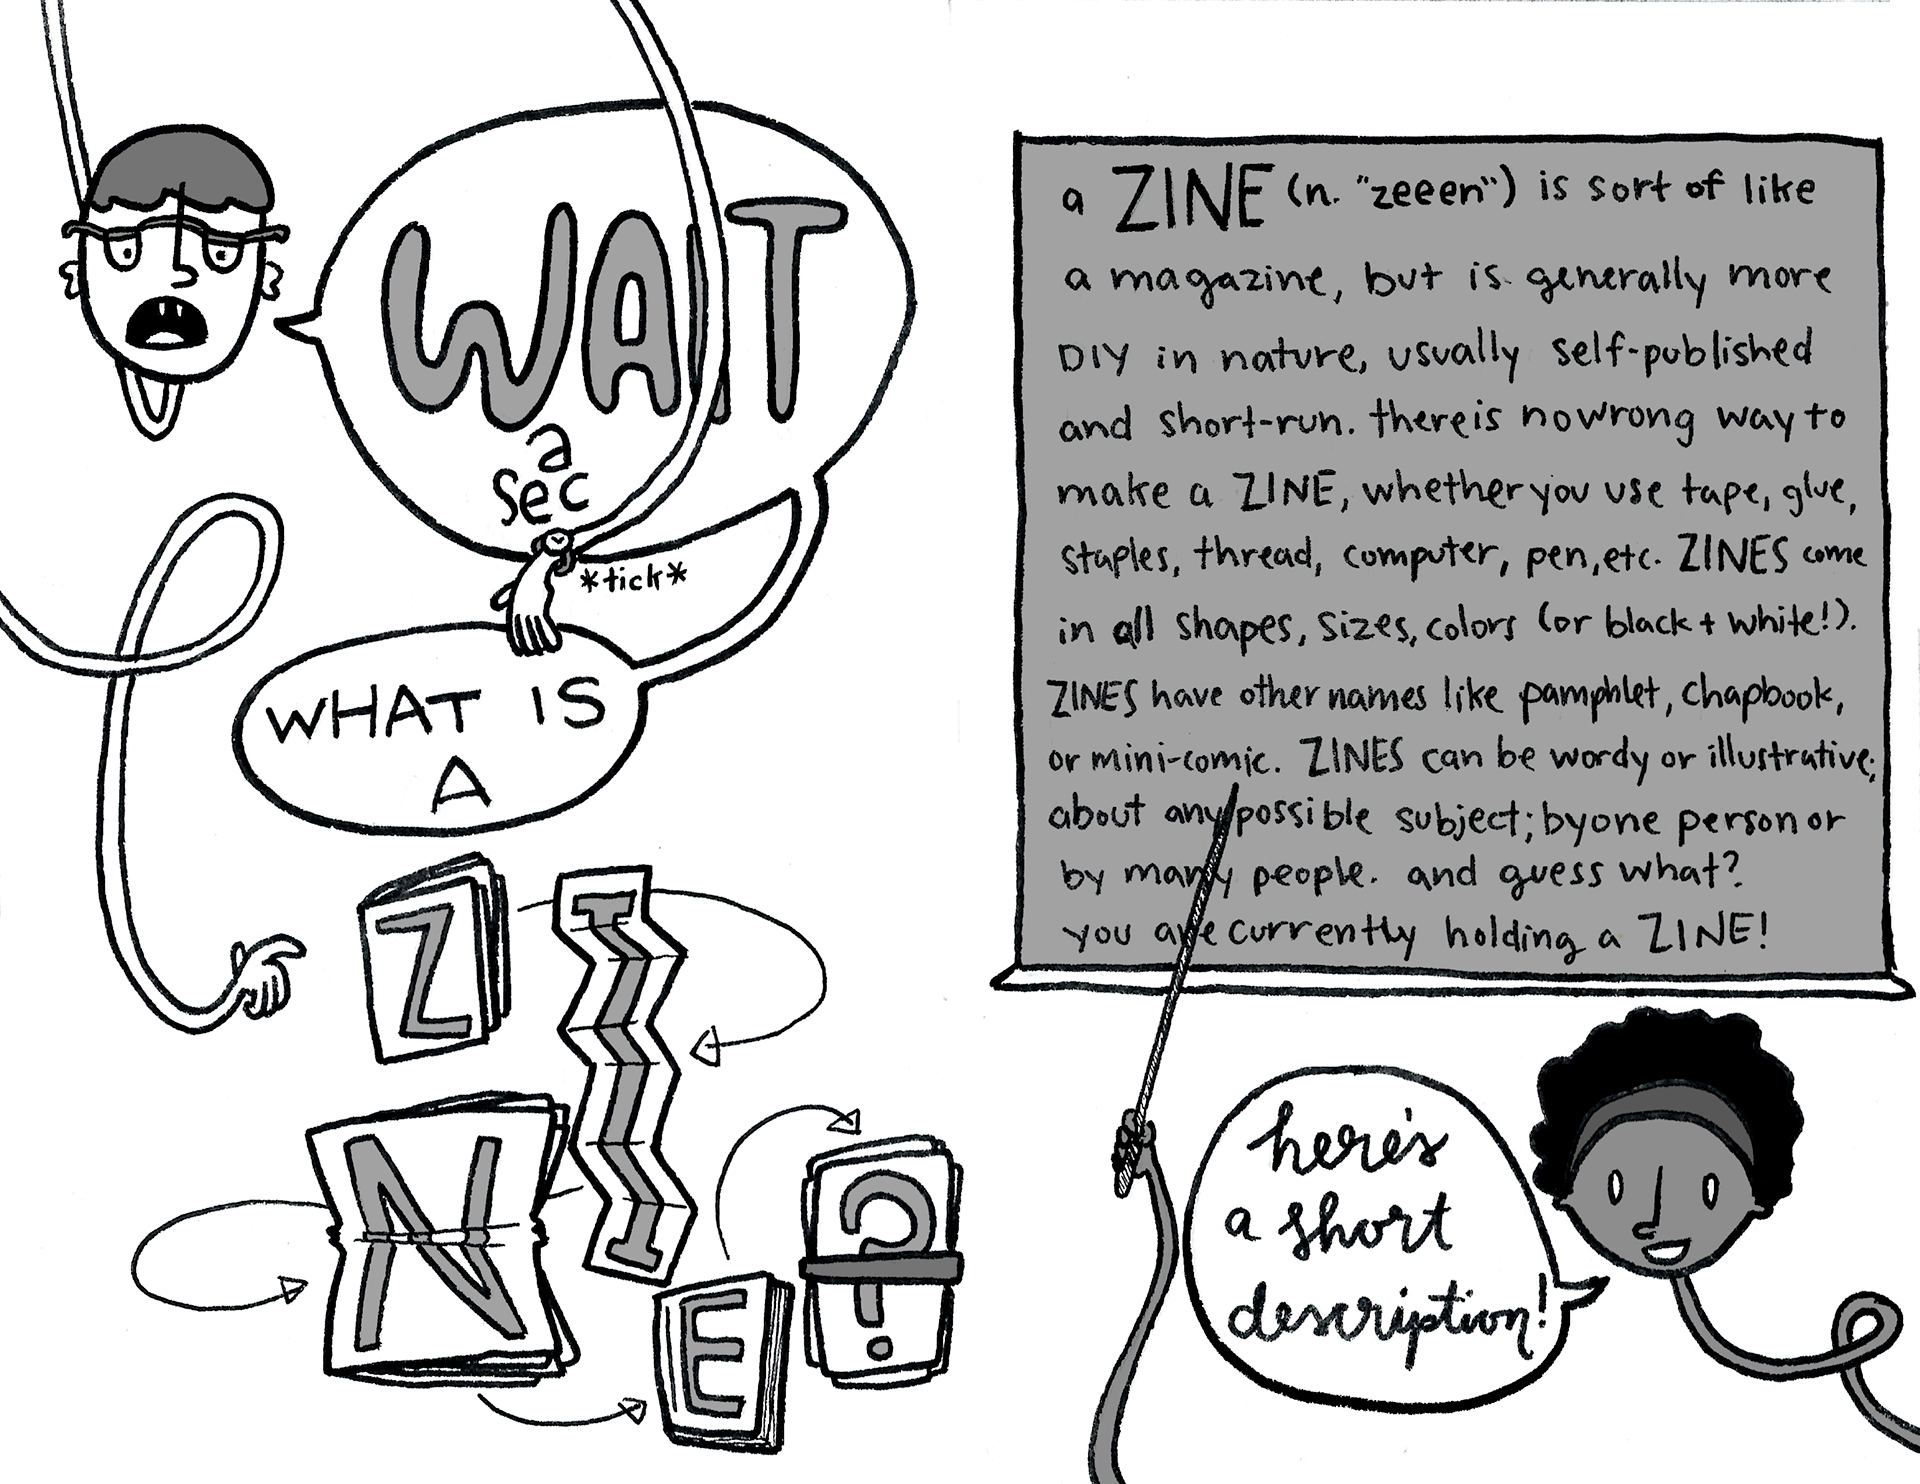 WAIT
a
sec
*tick*
WHAT IS
A
ZINE?
a ZINE (n. "zeeen") is sort of like
a magazine, but is generally more
DIY in nature, usually self-published
and short-run. there is no wrong way to
make a ZINE, whether you use tape, glue,
staples, thread, computer, pen, etc. ZINES come
in all shapes, sizes, colors (or black + white!).
ZINES have other names like pamphlet, chapbook,
or mini-comic. ZINES can be wordy or illustrative;
about any possible subject; by one person or
by many people. and guess what?
you are currently holding a ZINE!
here's
a short
description!